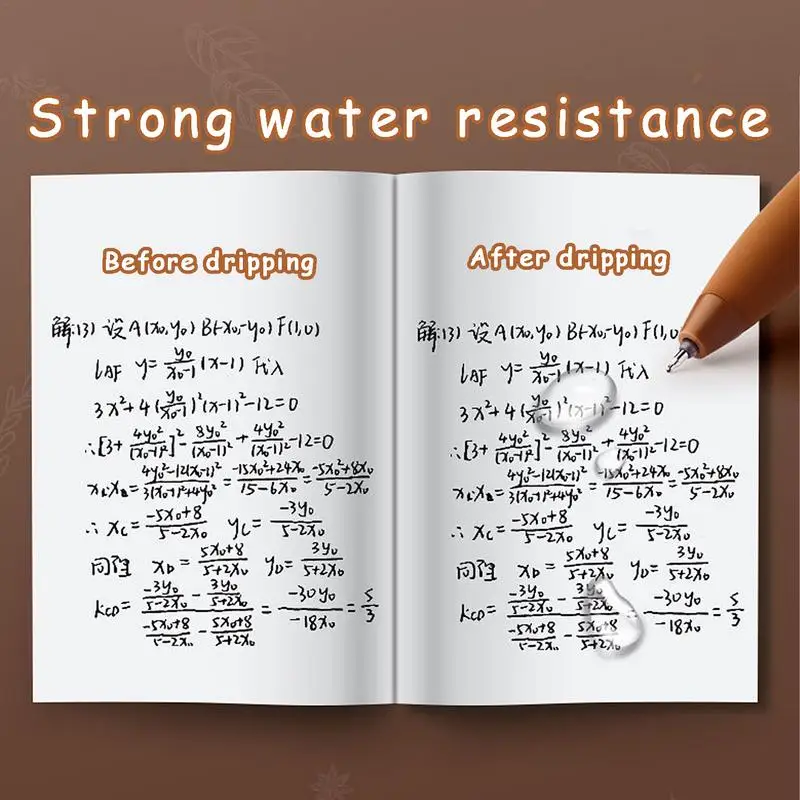 Strong water resistance
Before dripping
解:13) 设A(x₀,y₀) B(-x₀,-y₀) F(1,0)
lAF y=y₀/(x₀-1)(x-1) 代入
3x²+4(y₀/(x₀-1))²(x-1)²-12=0
∴[3+4y₀²/(x₀-1)²]²-8y₀²/(x₀-1)²+4y₀²/(x₀-1)²-12=0
=(4y₀²-12(x₀-1)²)/(3(x₀-1)²+4y₀²)=(-15x₀²+24x₀)/(15-6x₀)=(-5x₀²+8x₀)/(5-2x₀)
∴ x_C=(-5x₀+8)/(5-2x₀) y_C=-3y₀/(5-2x₀)
同理 x_D=(5x₀+8)/(5+2x₀) y_D=3y₀/(5+2x₀)
k_CD=(-3y₀/(5-2x₀)-3y₀/(5+2x₀))/((-5x₀+8)/(5-2x₀)-(5x₀+8)/(5+2x₀))=-30y₀/-18x₀=5/3
After dripping
解:13) 设A(x₀,y₀) B(-x₀,-y₀) F(1,0
lAF y=y₀/(x₀-1)(x-1) 代入
3x²+4(y₀/(x₀-1))²(x-1)²-12=0
∴[3+4y₀²/(x₀-1)²]²-8y₀²/(x₀-1)²+4y₀²/(x₀-1)²-12=0
=(4y₀²-12(x₀-1)²)/(3(x₀-1)²+4y₀²)=(-15x₀²+24x₀)/(15-6x₀)=(-5x₀²+8x₀)/(5-2x₀)
∴ x_C=(-5x₀+8)/(5-2x₀) y_C=-3y₀/(5-2x₀)
同理 x_D=(5x₀+8)/(5+2x₀) y_D=3y₀/(5+2x₀)
k_CD=(-3y₀/(5-2x₀)-3y₀/(5+2x₀))/((-5x₀+8)/(5-2x₀)-(5x₀+8)/(5+2x₀))=-30y₀/-18x₀=5/3